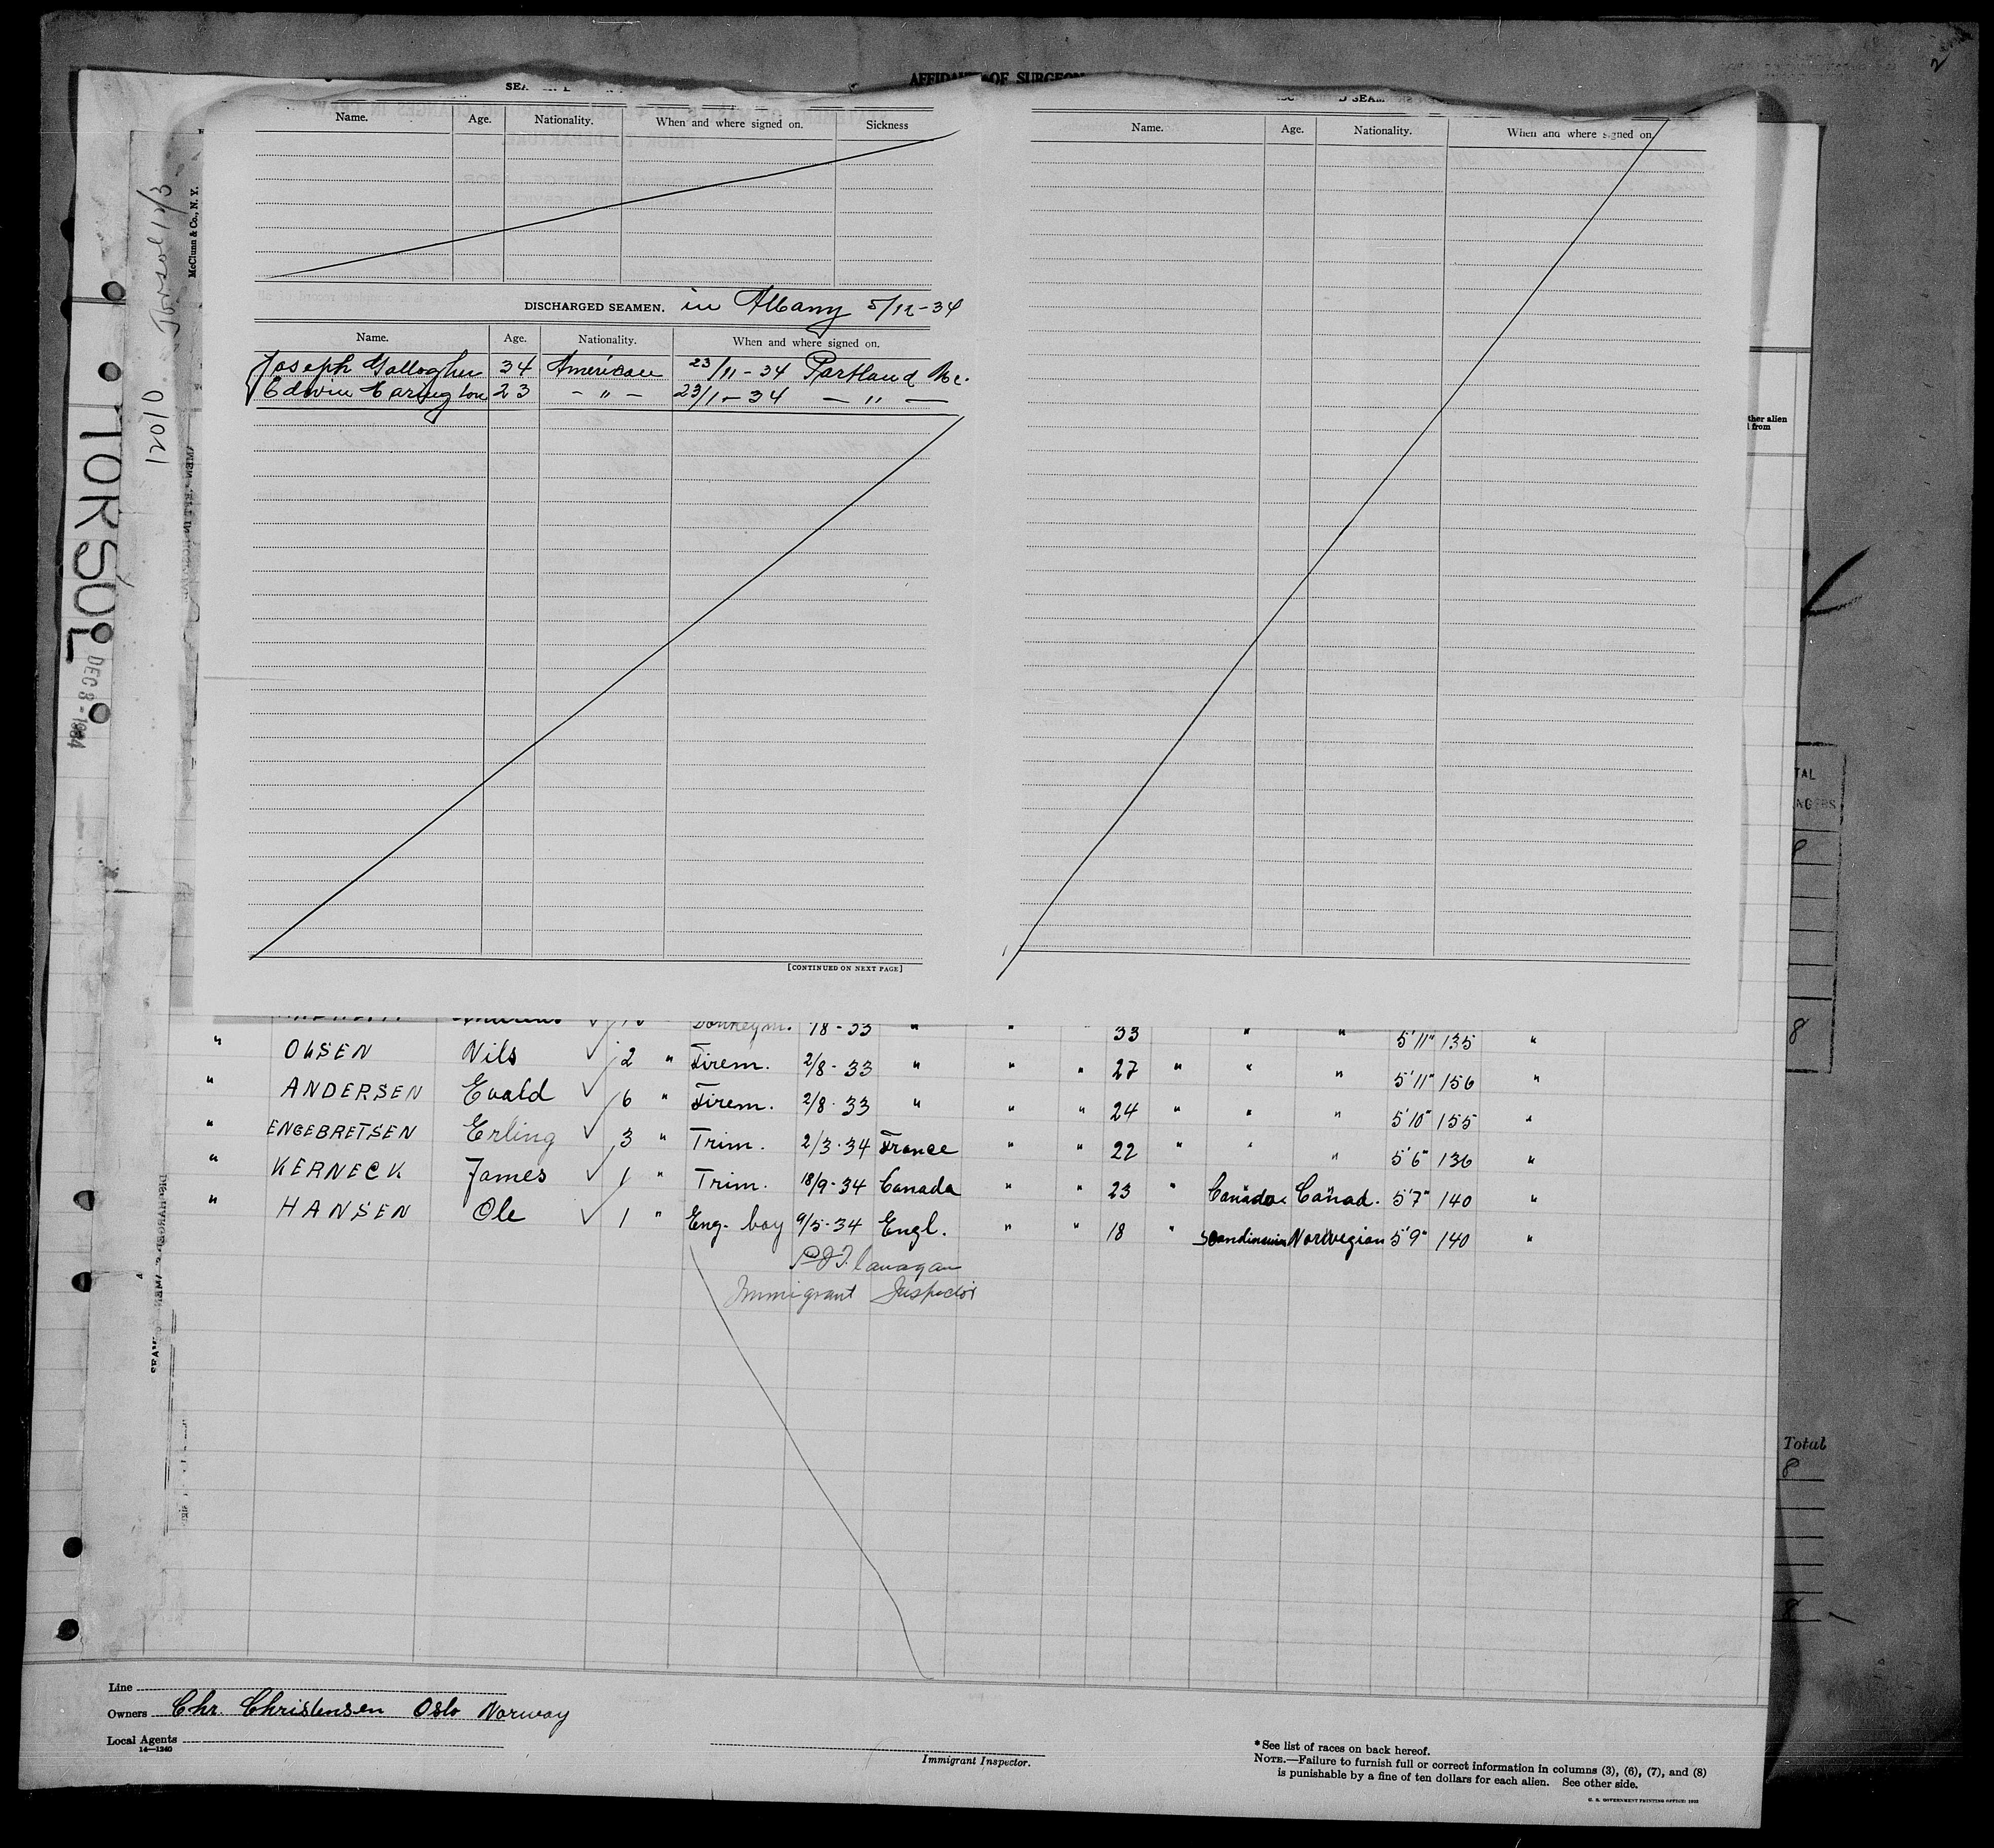 AFFIDAVIT OF SURGEON
Name. Age. Nationality. When and where signed on. Sickness
DISCHARGED SEAMEN. in Albany 5/12-34
Name. Age. Nationality. When and where signed on.
Joseph Gallogher 34 American 23/11-34 Portland Me.
Edwin Earington 23 - " - 23/1-34 - " -
[CONTINUED ON NEXT PAGE]
Name. Age. Nationality. When and where signed on
McClunn & Co., N. Y.
Torsol 12/3
12010
TORSOL
DEC 8 - 1934
ther alien
from
TAL
NGERS
8
8
Total
8
8
Donkeym. 18-33 " " " 33 " " 5'11" 135 "
" OLSEN Nils ✓ 2 " Firem. 2/8-33 " " " 27 " " " 5'11" 156 "
" ANDERSEN Evald ✓ 6 " Firem. 2/8-33 " " " 24 " " " 5'10" 155 "
" ENGEBRETSEN Erling ✓ 3 " Trim. 2/3-34 France " " 22 " " " 5'6" 136 "
" KERNECK James ✓ 1 " Trim. 18/9-34 Canada " " 23 " Canada Canad. 5'7" 140 "
" HANSEN Ole ✓ 1 " Eng. boy 9/5-34 Engl. " " 18 " Scandinavia Norwegian 5'9" 140 "
Flanagan
Immigrant Inspector
Line
Owners Chr. Christensen Oslo Norway
Local Agents
14—1240
Immigrant Inspector.
* See list of races on back hereof.
NOTE.—Failure to furnish full or correct information in columns (3), (6), (7), and (8)
is punishable by a fine of ten dollars for each alien. See other side.
U. S. GOVERNMENT PRINTING OFFICE: